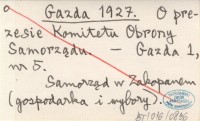 Gazda 1927. O pre-
zesie Komitetu Obrony
Samorządu. — Gazda 1,
nr 5.
Samorząd w Zakopanem
(gospodarka i wybory).